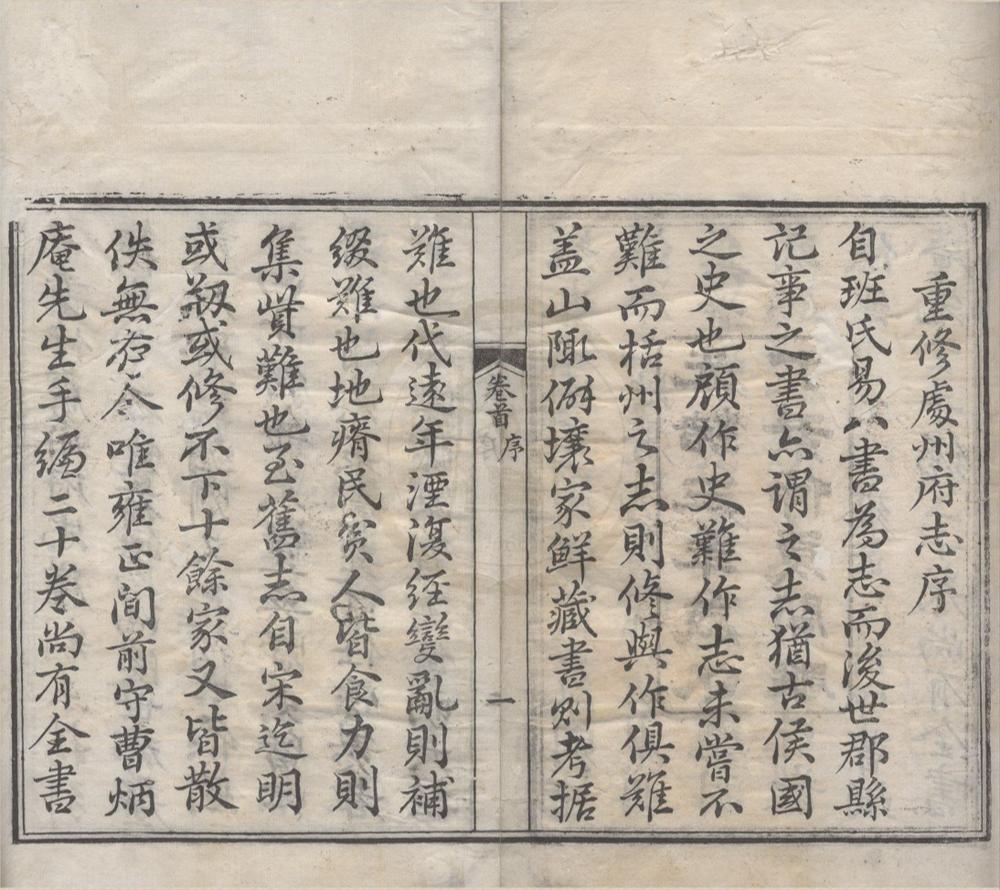 重修處州府志序
自班氏易八書為志而後世郡縣
記事之書亦謂之志猶古侯國
之史也顧作史難作志未嘗不
難而括州之志則修與作俱難
蓋山陬僻壤家鮮藏書則考据
卷首 序
一
難也代遠年湮復經變亂則補
綴難也地瘠民貧人皆食力則
集貲難也至舊志自宋迄明
或刱或修不下十餘家又皆散
佚無存今唯雍正間前守曹炳
庵先生手編二十卷尚有全書